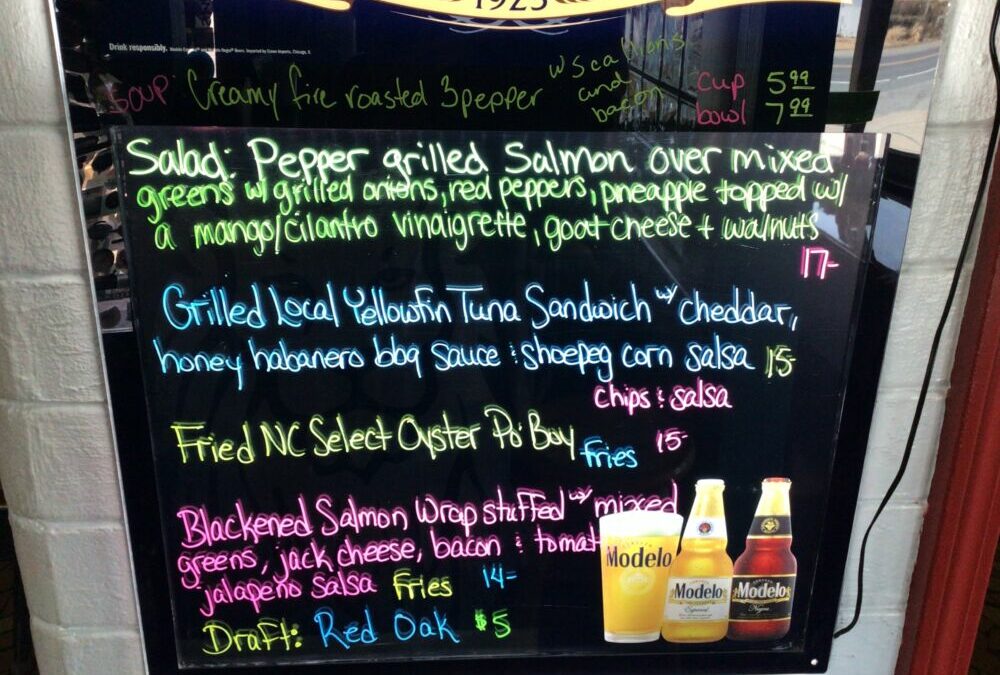 1925
Drink responsibly.
Soup Creamy fire roasted 3pepper w scallions and bacon cup 5.99
bowl 7.99
Salad: Pepper grilled Salmon over mixed
greens w/ grilled onions, red peppers, pineapple topped w/
a mango/cilantro vinaigrette, goat cheese + walnuts
17-
Grilled Local Yellowfin Tuna Sandwich w/ cheddar,
honey habanero bbq sauce & shoepeg corn salsa 15-
chips & salsa
Fried NC Select Oyster Po' Boy fries 15-
Blackened Salmon Wrap stuffed w/ mixed
greens, jack cheese, bacon & tomat
jalapeño salsa fries 14-
Draft: Red Oak $5
Modelo
Modelo
Especial
Modelo
Negra